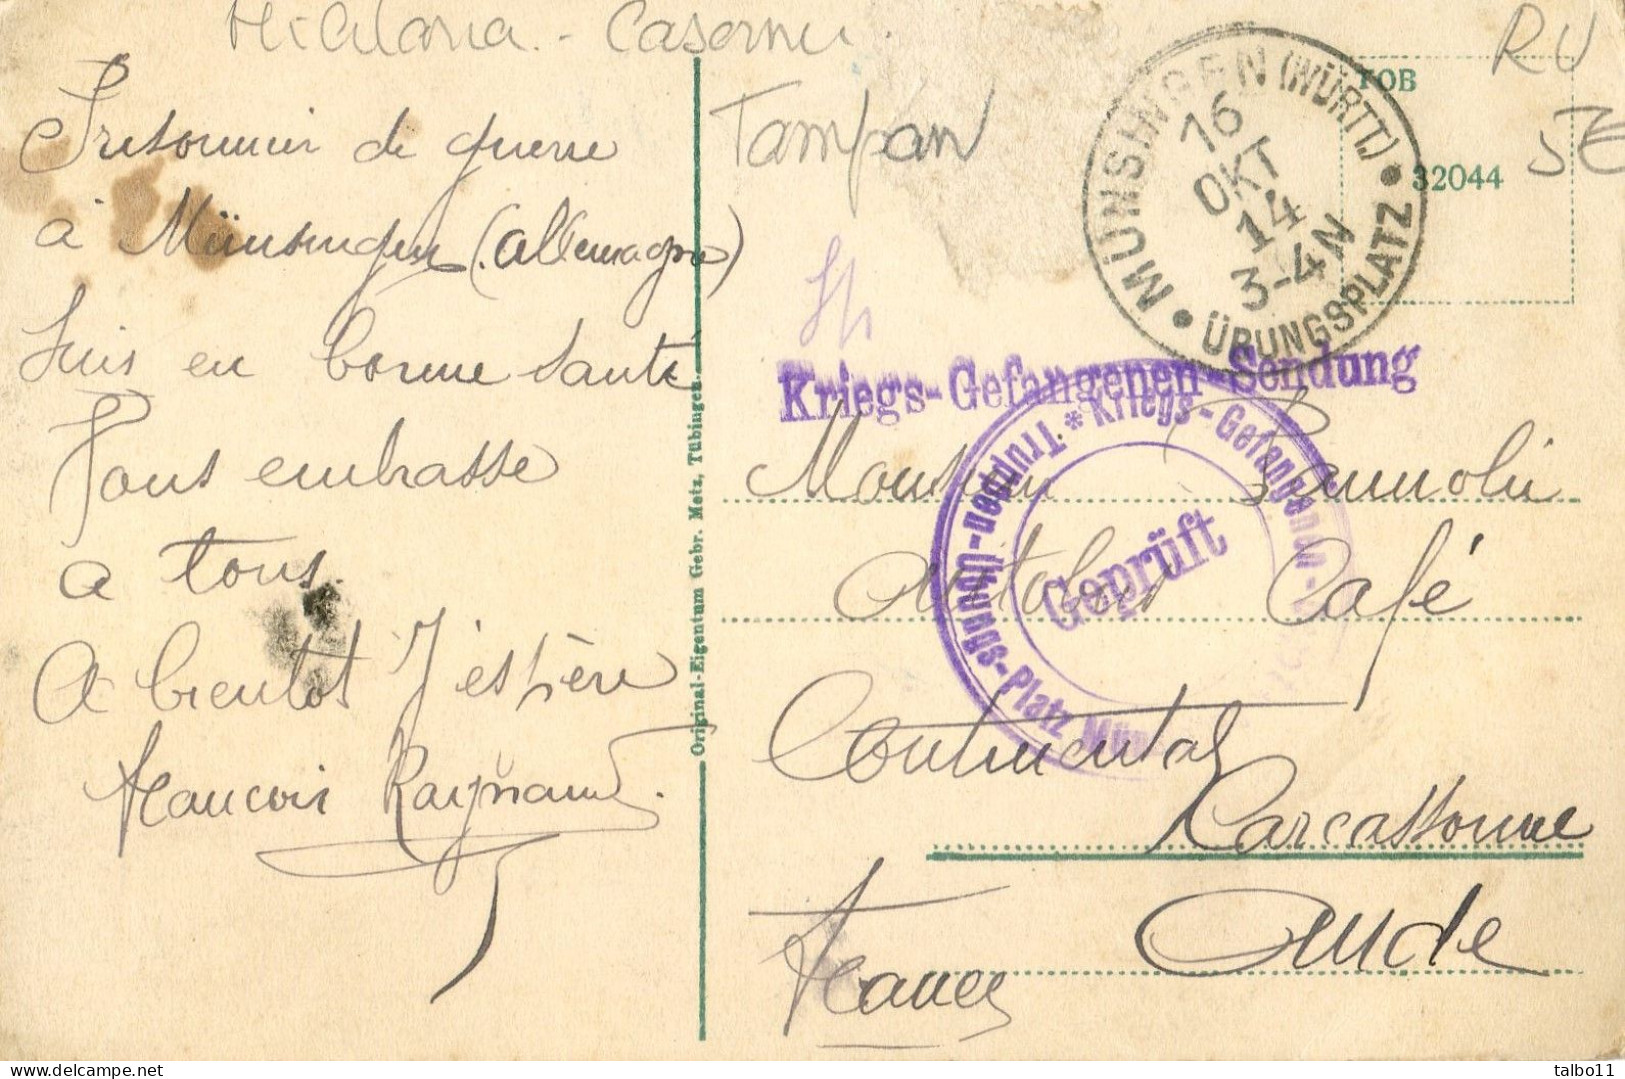 Militaria - Caserne
Prisonnier de guerre
à Münsingen (Allemagne)
Suis en bonne santé
Vous embrasse
a tous
A bientot J'espère
Francois Raynaud
Original-Eigentum Gebr. Metz, Tübingen.
Tampon
RU
5E
FOB
32044
MÜNSINGEN (WÜRTT.)
16
OKT
14
3-4N
ÜBUNGSPLATZ
Kriegs-Gefangenen-Sendung
Truppen-Übungs-Platz Mün
* Kriegs-Gefangenen-
Geprüft
Monsieur
Autobus Café
Continental
Carcassonne
Aude
France
delcampe.net
talbo11